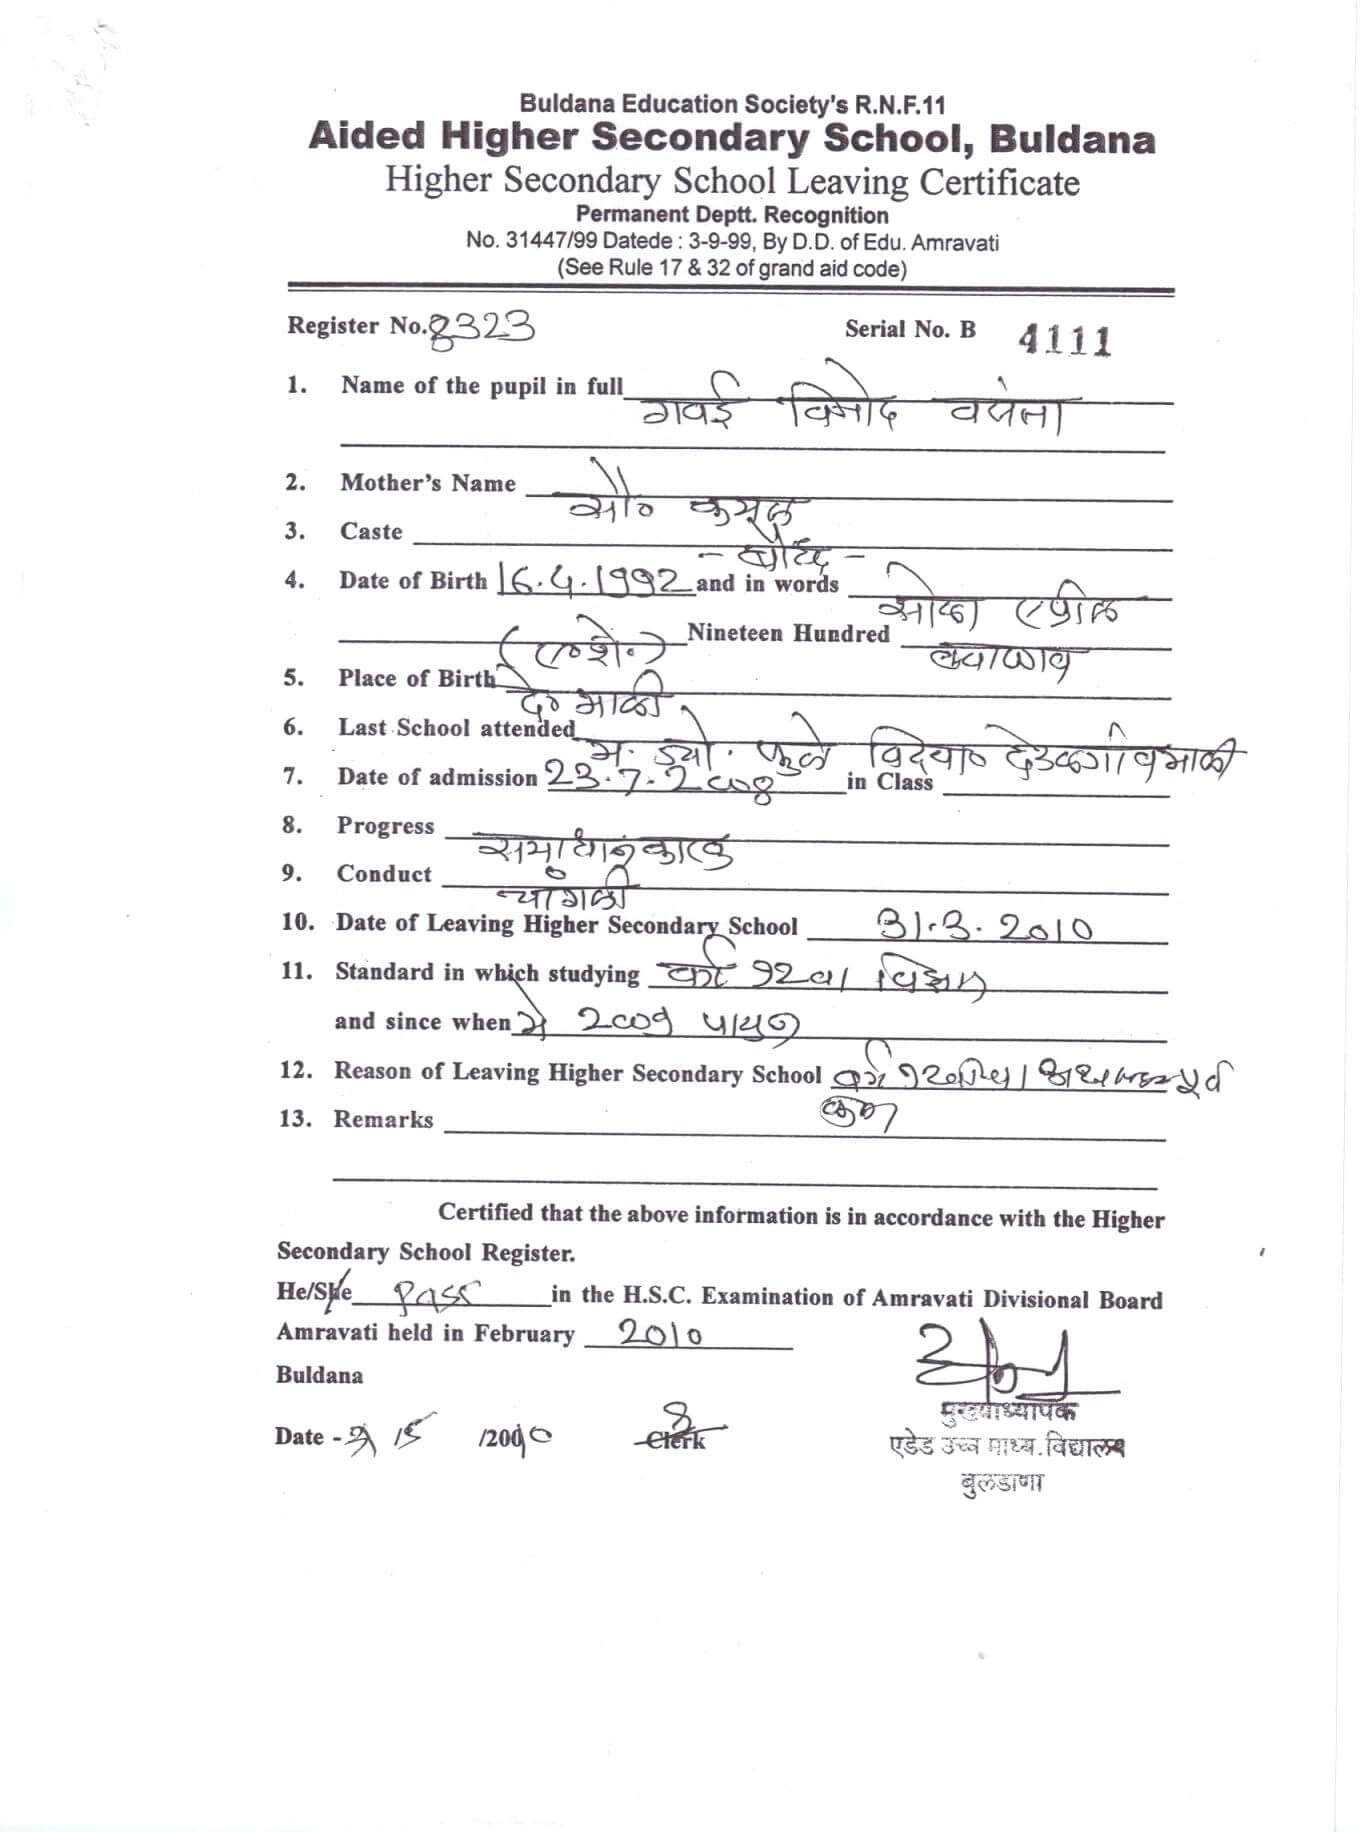 Buldana Education Society's R.N.F.11
Aided Higher Secondary School, Buldana
Higher Secondary School Leaving Certificate
Permanent Deptt. Recognition
No. 31447/99 Datede : 3-9-99, By D.D. of Edu. Amravati
(See Rule 17 & 32 of grand aid code)
Register No. 8323 Serial No. B 4111
1. Name of the pupil in full गवई विनोद वसंता
2. Mother's Name सौ० कमल
3. Caste - बौद्ध -
4. Date of Birth 16.4.1992 and in words सोळा एप्रील
(एकोशे.) Nineteen Hundred ब्याण्णव
5. Place of Birth दे० माळी
6. Last School attended म. ज्यो. फुले विद्या० देउळगांव माळी
7. Date of admission 23.7.2008 in Class
8. Progress समाधानकारक
9. Conduct चांगली
10. Date of Leaving Higher Secondary School 31.3.2010
11. Standard in which studying वर्ग १२वा विज्ञान
and since when जुन 2009 पासुन
12. Reason of Leaving Higher Secondary School वर्ग १२
13. Remarks
Certified that the above information is in accordance with the Higher
Secondary School Register.
He/She Pass in the H.S.C. Examination of Amravati Divisional Board
Amravati held in February 2010
Buldana
Date - /2010 Clerk
मुख्याध्यापक
एडेड उच्च माध्य.विद्यालय
बुलडाणा